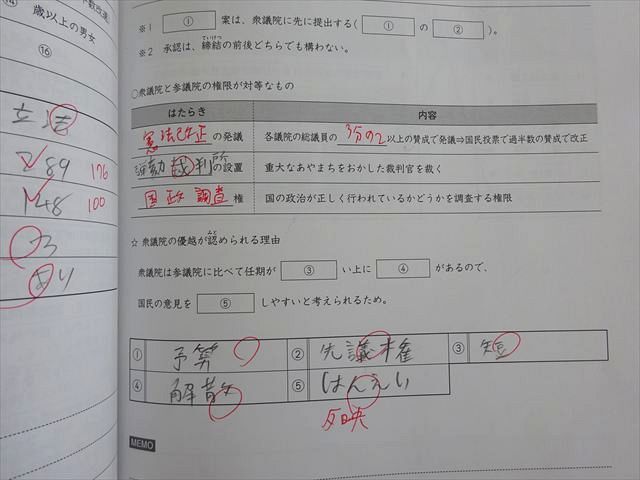 数改選）
⑭ 歳以上の男女
⑯
立法
289
176
148
100
3
あり
※1 ① 案は、衆議院に先に提出する（ ① の ② ）。
※2 承認は、締結の前後どちらでも構わない。
ていけつ
○衆議院と参議院の権限が対等なもの
はたらき 内容
憲法改正の発議 各議院の総議員の 3分の2 以上の賛成で発議⇒国民投票で過半数の賛成で改正
弾劾裁判所の設置 重大なあやまちをおかした裁判官を裁く
国政調査権 国の政治が正しく行われているかどうかを調査する権限
☆ 衆議院の優越が認められる理由
みと
衆議院は参議院に比べて任期が ③ い上に ④ があるので、
国民の意見を ⑤ しやすいと考えられるため。
① 予算 ② 先議権 ③ 短
④ 解散 ⑤ はんえい
反映
MEMO